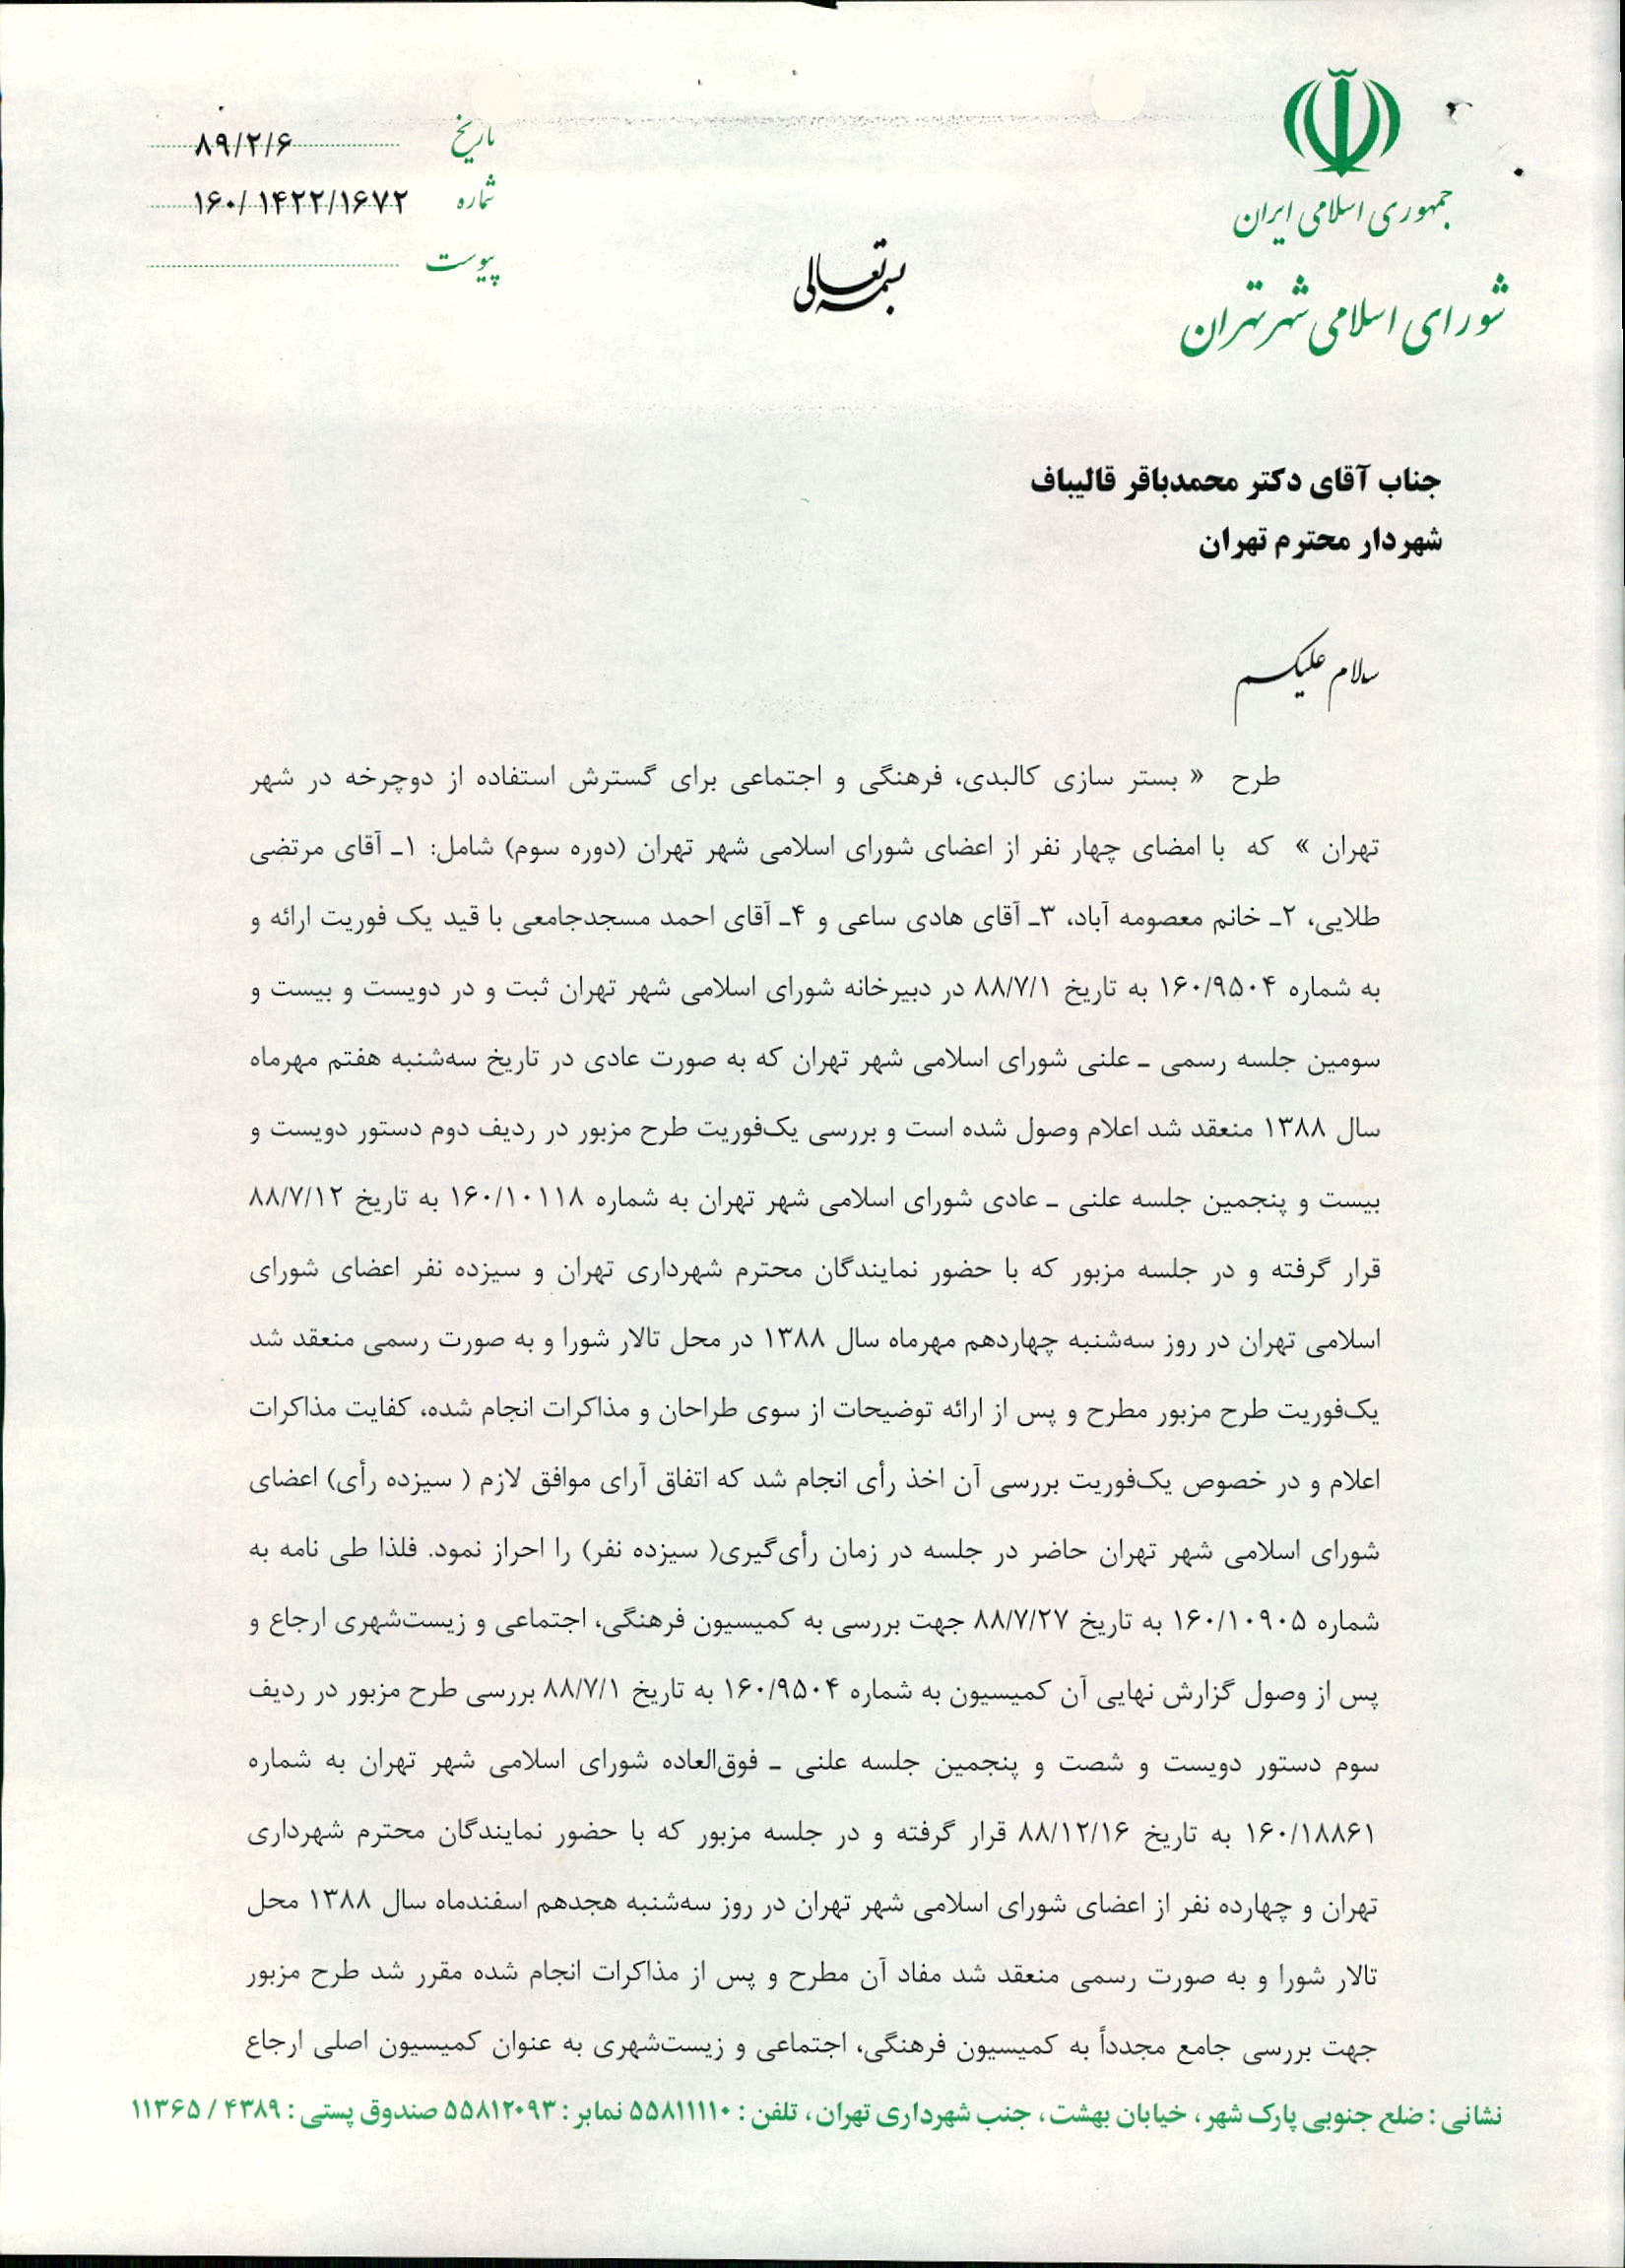 جمهوری اسلامی ایران
شورای اسلامی شهر تهران
تاریخ ۸۹/۲/۶
شماره ۱۶۰/ ۱۴۲۲/۱۶۷۲
پیوست
بسمه تعالی
جناب آقای دکتر محمدباقر قالیباف
شهردار محترم تهران
سلام علیکم
طرح « بستر سازی کالبدی، فرهنگی و اجتماعی برای گسترش استفاده از دوچرخه در شهر
تهران » که با امضای چهار نفر از اعضای شورای اسلامی شهر تهران (دوره سوم) شامل: ۱ـ آقای مرتضی
طلایی، ۲ـ خانم معصومه آباد، ۳ـ آقای هادی ساعی و ۴ـ آقای احمد مسجدجامعی با قید یک فوریت ارائه و
به شماره ۱۶۰/۹۵۰۴ به تاریخ ۸۸/۷/۱ در دبیرخانه شورای اسلامی شهر تهران ثبت و در دویست و بیست و
سومین جلسه رسمی ـ علنی شورای اسلامی شهر تهران که به صورت عادی در تاریخ سه‌شنبه هفتم مهرماه
سال ۱۳۸۸ منعقد شد اعلام وصول شده است و بررسی یک‌فوریت طرح مزبور در ردیف دوم دستور دویست و
بیست و پنجمین جلسه علنی ـ عادی شورای اسلامی شهر تهران به شماره ۱۶۰/۱۰۱۱۸ به تاریخ ۸۸/۷/۱۲
قرار گرفته و در جلسه مزبور که با حضور نمایندگان محترم شهرداری تهران و سیزده نفر اعضای شورای
اسلامی تهران در روز سه‌شنبه چهاردهم مهرماه سال ۱۳۸۸ در محل تالار شورا و به صورت رسمی منعقد شد
یک‌فوریت طرح مزبور مطرح و پس از ارائه توضیحات از سوی طراحان و مذاکرات انجام شده، کفایت مذاکرات
اعلام و در خصوص یک‌فوریت بررسی آن اخذ رأی انجام شد که اتفاق آرای موافق لازم ( سیزده رأی) اعضای
شورای اسلامی شهر تهران حاضر در جلسه در زمان رأی‌گیری( سیزده نفر) را احراز نمود. فلذا طی نامه به
شماره ۱۶۰/۱۰۹۰۵ به تاریخ ۸۸/۷/۲۷ جهت بررسی به کمیسیون فرهنگی، اجتماعی و زیست‌شهری ارجاع و
پس از وصول گزارش نهایی آن کمیسیون به شماره ۱۶۰/۹۵۰۴ به تاریخ ۸۸/۷/۱ بررسی طرح مزبور در ردیف
سوم دستور دویست و شصت و پنجمین جلسه علنی ـ فوق‌العاده شورای اسلامی شهر تهران به شماره
۱۶۰/۱۸۸۶۱ به تاریخ ۸۸/۱۲/۱۶ قرار گرفته و در جلسه مزبور که با حضور نمایندگان محترم شهرداری
تهران و چهارده نفر از اعضای شورای اسلامی شهر تهران در روز سه‌شنبه هجدهم اسفندماه سال ۱۳۸۸ محل
تالار شورا و به صورت رسمی منعقد شد مفاد آن مطرح و پس از مذاکرات انجام شده مقرر شد طرح مزبور
جهت بررسی جامع مجدداً به کمیسیون فرهنگی، اجتماعی و زیست‌شهری به عنوان کمیسیون اصلی ارجاع
نشانی : ضلع جنوبی پارک شهر ، خیابان بهشت ، جنب شهرداری تهران ، تلفن : ۵۵۸۱۱۱۱۰ نمابر : ۵۵۸۱۲۰۹۳ صندوق پستی : ۴۳۸۹ / ۱۱۳۶۵